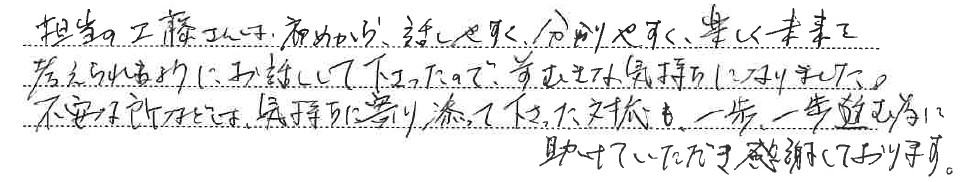 担当の工藤さんは、初めから、話しやすく、分かりやすく、楽しく未来を
考えられるように、お話しして下さったので、前むきな気持ちになりました。
不安な所などでは、気持ちに寄り添って下さった対応も、一歩、一歩進む為に
助けていただき感謝しております。